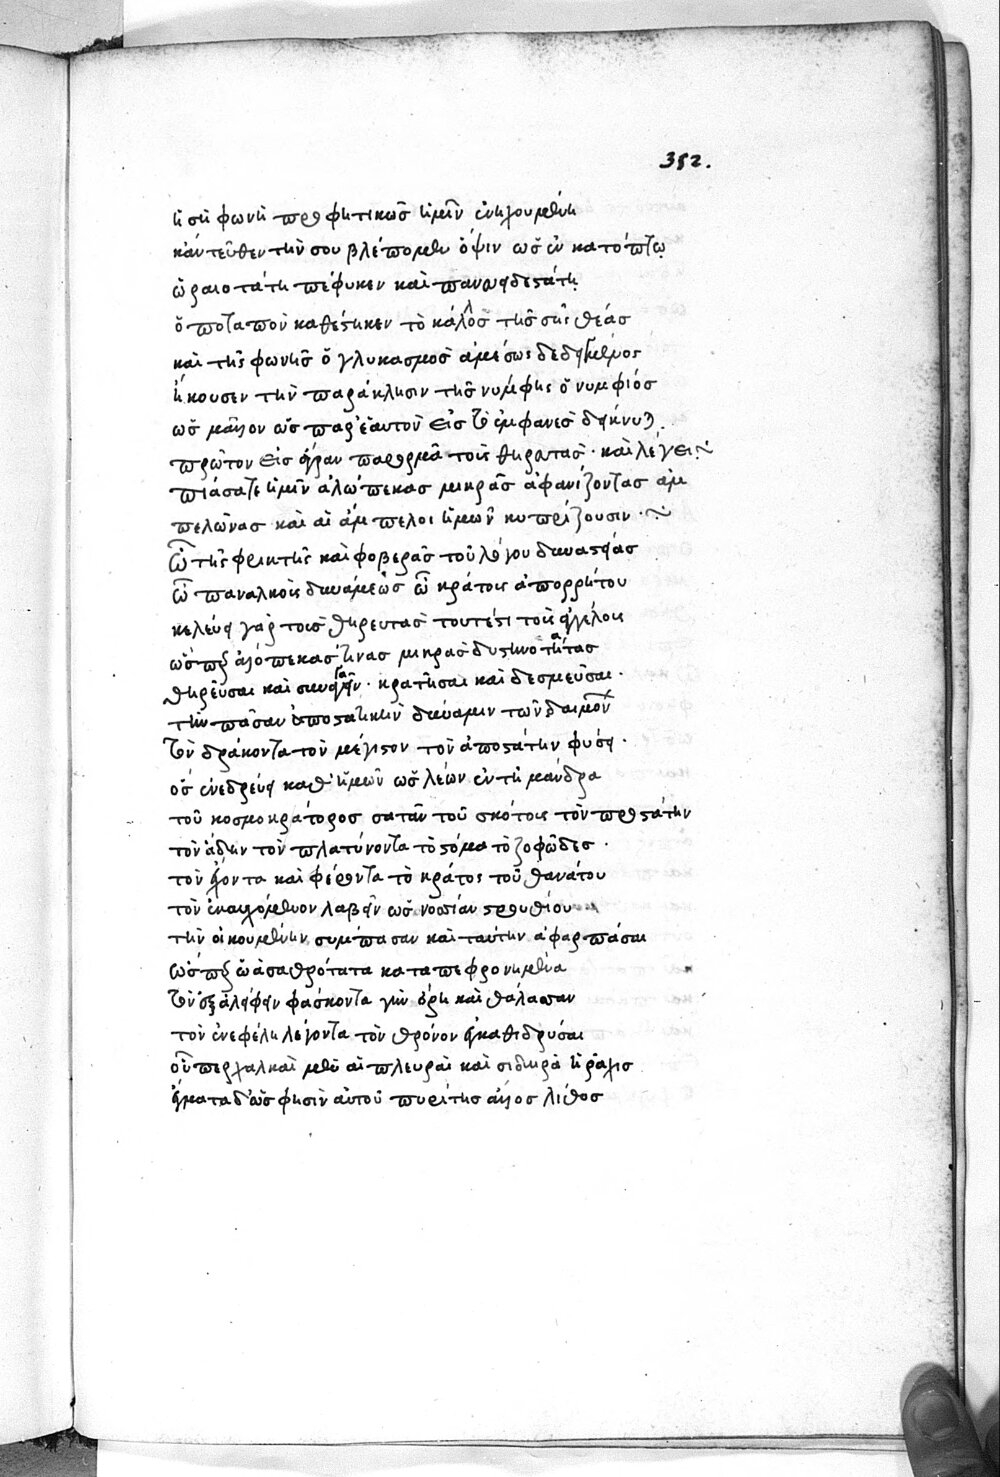 352.
ἡ σὴ φωνὴ προφητικῶς ἡμῖν ἐνηχουμένη
κἀντεῦθεν τήν σου βλέπομεν ὄψιν ὡς ἐν κατόπτρῳ
ὡραιοτάτη πέφυκεν καὶ πανευειδεστάτη
ὁποταπὸν καθέστηκεν τὸ κάλλος τῆς σῆς θέας
καὶ τῆς φωνῆς ὁ γλυκασμὸς ἀμέσως δεδειγμένος
ἤκουσεν τὴν παράκλησιν τῆς νύμφης ὁ νυμφίος
ὡς μᾶλλον ὡς παρ' ἑαυτὸν εἰς τὸ ἐμφανὲς δεικνύει.
πρῶτον εἰς ἄγραν παρορμᾶ τοὺς θηρατὰς · καὶ λέγει:~
πιάσατε ἡμῖν ἀλώπεκας μικρὰς ἀφανίζοντας ἀμ
πελῶνας καὶ αἱ ἄμπελοι ἡμῶν κυπρίζουσιν ·~
ὢ τῆς φρικτῆς καὶ φοβερᾶς τοῦ λόγου δυναστείας
ὢ παναλκοῦς δυνάμεως ὢ κράτους ἀπορρήτου
κελεύει γὰρ τοῖς θηρευτὰς τουτέστι τοῖς ἀγγέλοις
ὥσπερ ἀλόπεκας τινας μικρὰς δυστηνοτάτας
θηρεῦσαι καὶ συναγαγεῖν · κρατῆσαι καὶ δεσμεῦσαι ·
τὴν πᾶσαν ἀποστατικὴν δύναμιν τῶν δαιμόνων
τὸν δράκοντα τὸν μέγιστον τὸν ἀποστάτην φύσει ·
ὃς ἐνεδρεύει καθ' ἡμῶν ὡς λέων ἐν τῇ μάνδρα
τοῦ κοσμοκράτορος σατᾶν τοῦ σκότους τὸν προστάτην
τὸν ἅδην τὸν πλατύνοντα τὸ στόμα τὸ ζοφῶδες ·
τὸν ἔχοντα καὶ φέροντα τὸ κράτος τοῦ θανάτου
τὸν ἐπαυχόμενον λαβεῖν ὡς νοσσίαν στρουθίου
τὴν οἰκουμένην σύμπασαν καὶ ταύτην ἀφαρπάσαι
ὥσπερ ὠὰ σαθρότατα καταπεφρονημένα
τὸν ἐξαλείφειν φάσκοντα γῆν ὄρη καὶ θάλασσαν
τὸν ἐν νεφέλῃ λέγοντα τὸν θρόνον ἐγκαθιδρύσαι
οὗπερ χαλκαῖ μὲν αἱ πλευραὶ καὶ σιδηρὰ ἡ ῥάχις
ἔγκατα δ' ὥς φησὶν αὐτοῦ πυρίτης ἄλλος λίθος